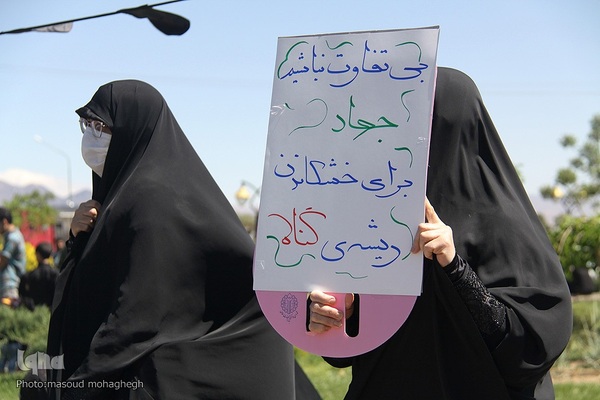 بی تفاوت نباشیم
جهاد
برای خشکاندن
ریشه‌ی گناه
iqna
Photo:masoud mohaghegh